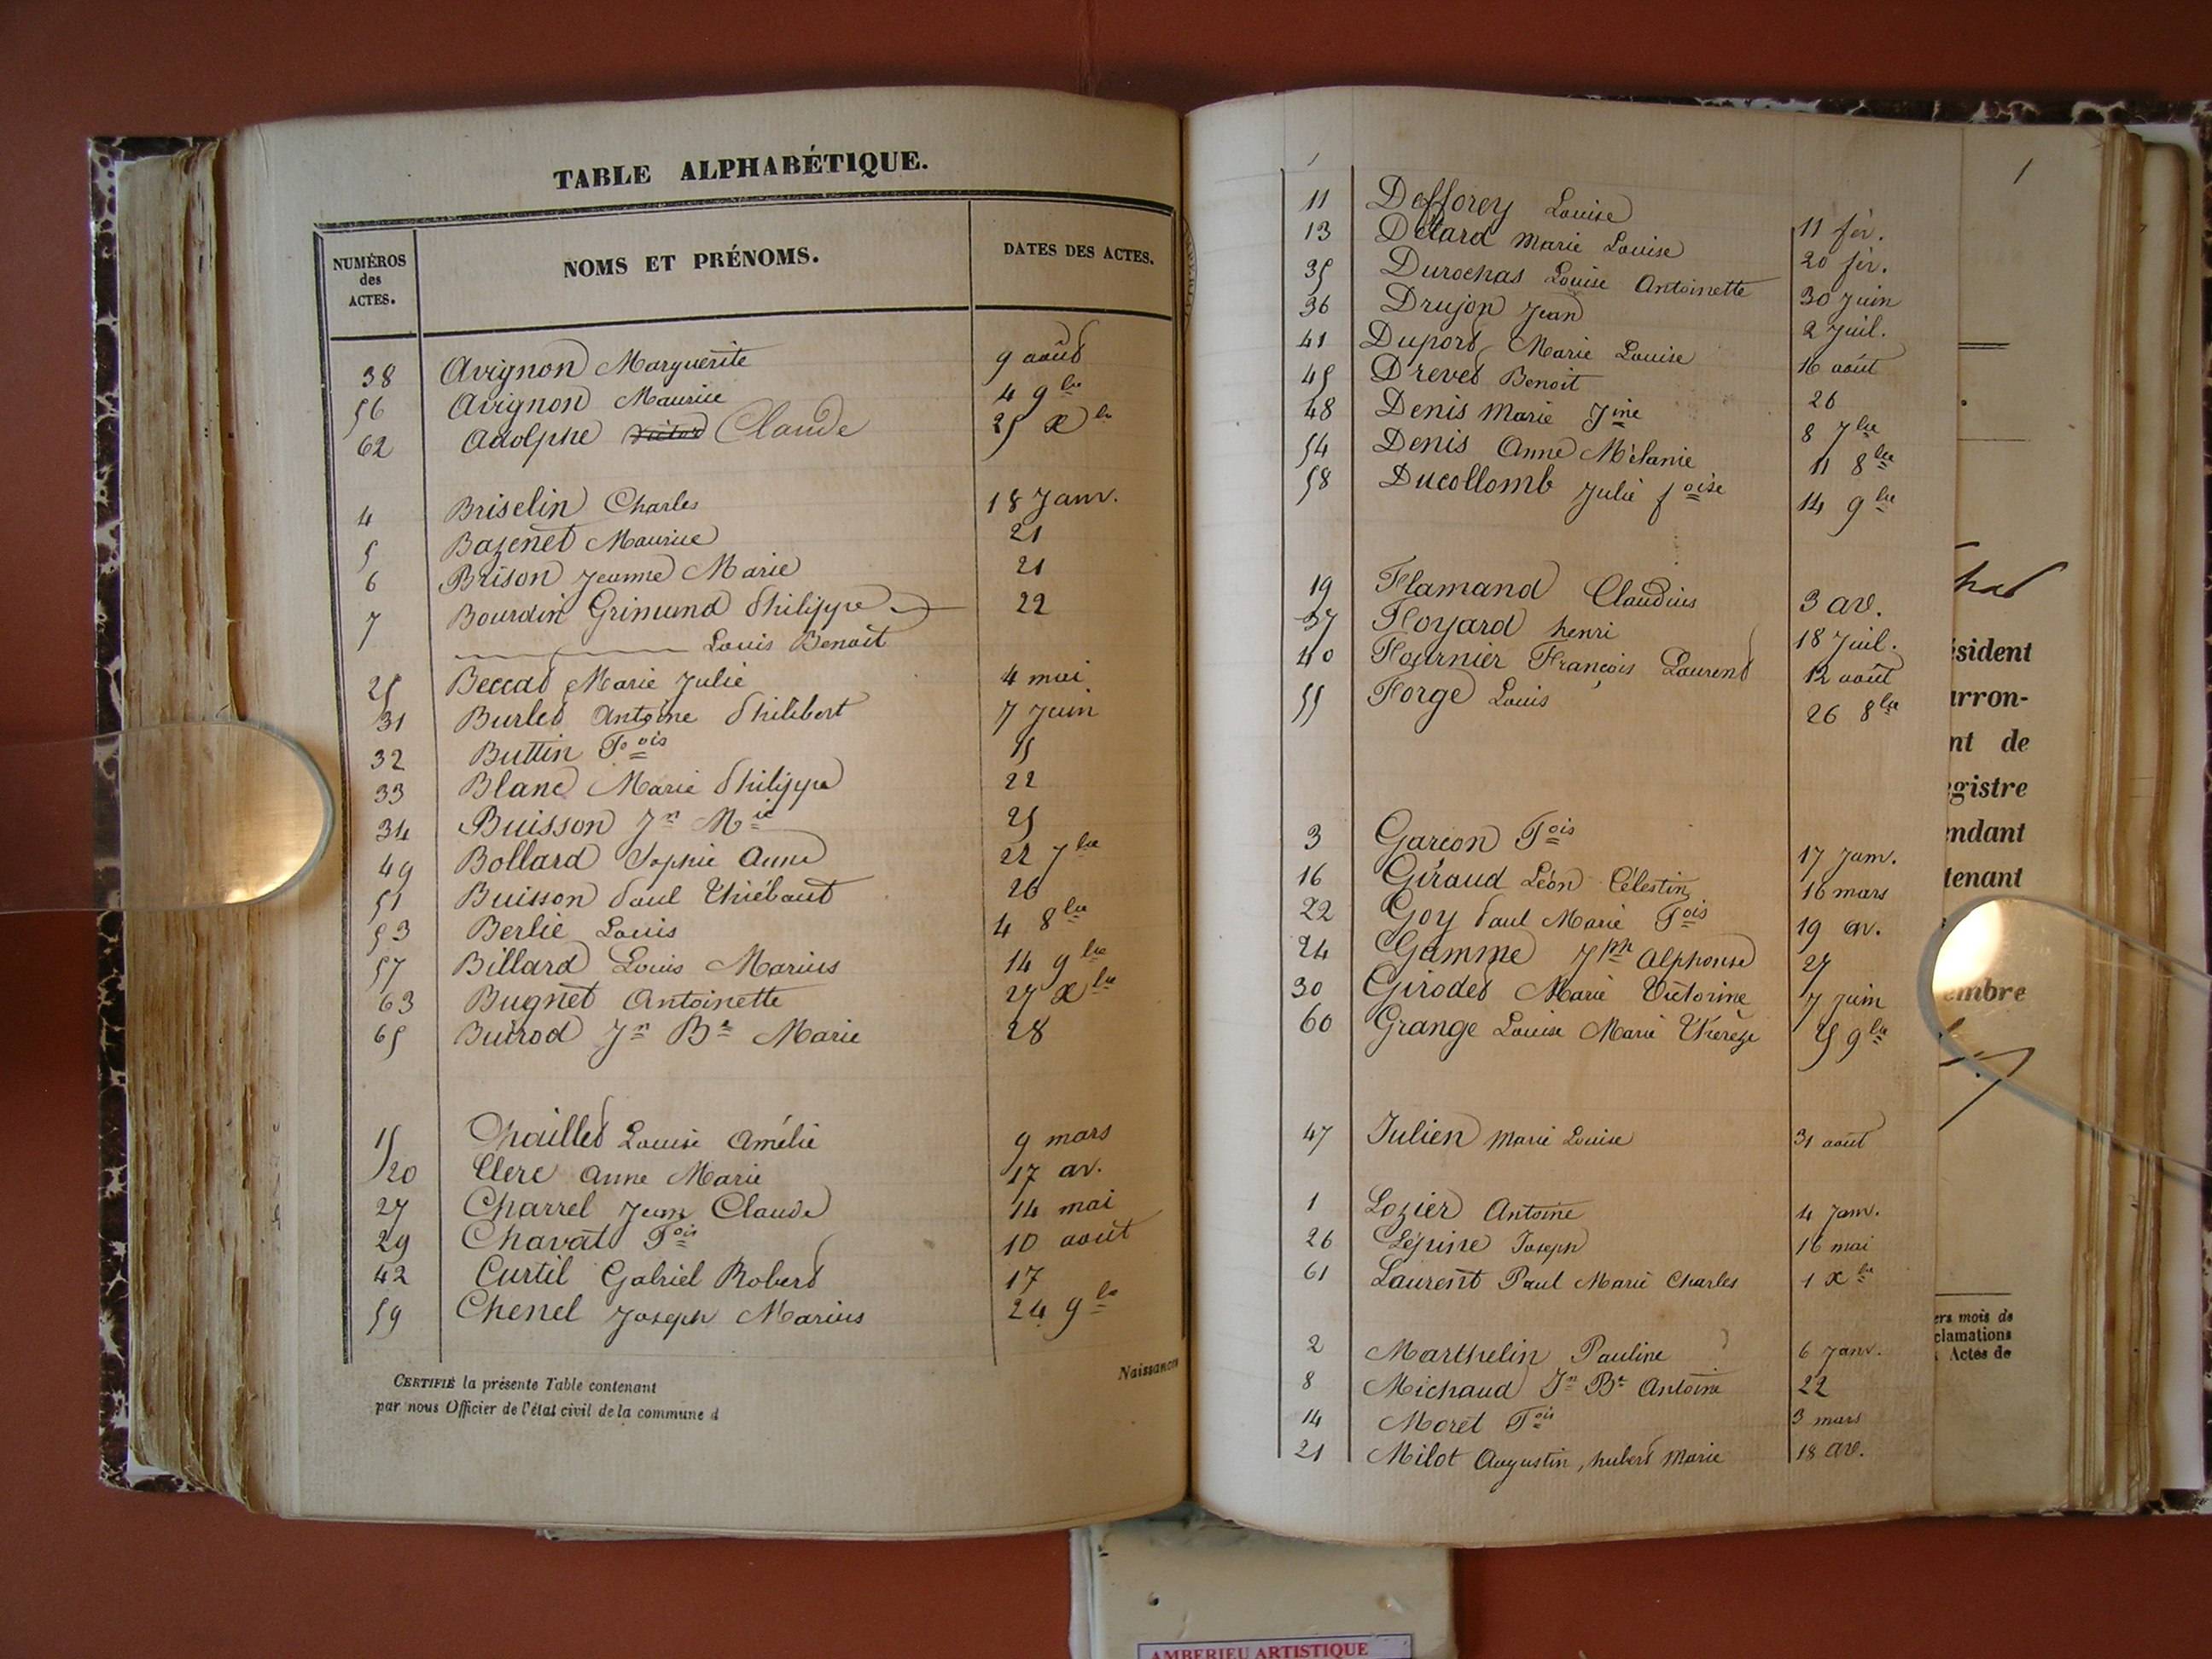 TABLE ALPHABÉTIQUE.
NUMÉROS des ACTES. NOMS ET PRÉNOMS. DATES DES ACTES.
38 Avignon Marguerite 9 août
56 Avignon Maurice 4 9bre
62 Adolphe Victor Claude 25 xbre
4 Briselin Charles 18 Janv.
5 Bazenet Maurice 21
6 Brison Jeanne Marie 21
7 Bourdin Grimund Philippe 22
Louis Benoit
25 Beccat Marie Julie 4 mai
31 Burlet Antoine Philibert 7 Juin
32 Buttin Fois 15
33 Blanc Marie Philippe 22
34 Buisson Jn Mie 25
49 Bollard Sophie Anne 22 7bre
51 Buisson Paul Thiébaut 26
53 Berlie Louis 4 8bre
57 Billard Louis Marius 14 9bre
63 Bugnet Antoinette 27 xbre
65 Buirod Jn Bte Marie 28
15 Chaillet Louise Amélie 9 mars
20 Clerc Anne Marie 17 av.
27 Charrel Jean Claude 14 mai
29 Chavat Fois 10 août
42 Curtil Gabriel Robert 17
59 Chenel Joseph Marius 24 9bre
CERTIFIÉ la présente Table contenant
par nous Officier de l'état civil de la commune d
Naissances
11 Defforey Louise 11 fév.
13 Détard Marie Louise 20 fév.
35 Durochas Louise Antoinette 30 Juin
36 Drujon Jean 2 Juil.
41 Duport Marie Louise 16 août
45 Drevet Benoit 26
48 Denis Marie Jine 8 7bre
54 Denis Anne Mélanie 11 8bre
58 Ducollomb Julie foise 14 9bre
19 Flamand Claudius 3 av.
37 Foyard henri 18 Juil.
40 Fournier François Laurent 12 août
55 Forge Louis 26 8bre
3 Garcon Fois 17 Janv.
16 Giraud Léon Célestin 16 mars
22 Goy Paul Marie Fois 19 av.
24 Gamme Jph Alphonse 27
30 Girodet Marie Victorine 7 Juin
60 Grange Louise Marie Thérèze 25 9bre
47 Julien Marie Louise 31 août
1 Lozier Antoine 4 Janv.
26 Lépine Joseph 16 mai
61 Laurent Paul Marie Charles 1 xbre
2 Marthelin Pauline 6 Janv.
8 Michaud Jn Bte Antoine 22
14 Moret Fois 3 mars
21 Milot Augustin, hubert Marie 18 av.
1
sident
rron-
nt de
gistre
ndant
tenant
embre
ers mois de
clamations
Actes de
AMBERIEU ARTISTIQUE